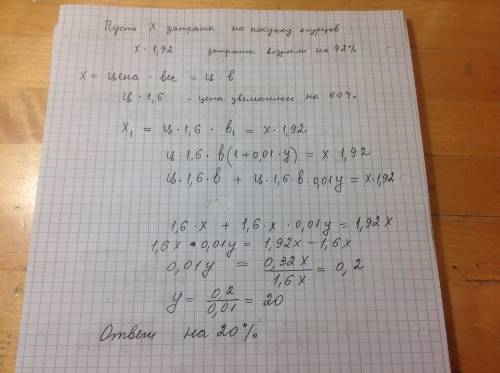 Пусть X затраты на покупку огурцов
X · 1,92 затраты возросли на 92%
X = цена · вес = ц · в
ц · 1,6 - цена увеличилась на 60%
X₁ = ц · 1,6 · в₁ = X · 1,92
ц · 1,6 · в(1 + 0,01 · y) = X · 1,92
ц · 1,6 · в + ц · 1,6 · в · 0,01y = X · 1,92
1,6 · X + 1,6 · X · 0,01y = 1,92X
1,6X · 0,01y = 1,92X - 1,6X
0,01y = 0,32X / 1,6X = 0,2
y = 0,2 / 0,01 = 20
Ответ на 20%